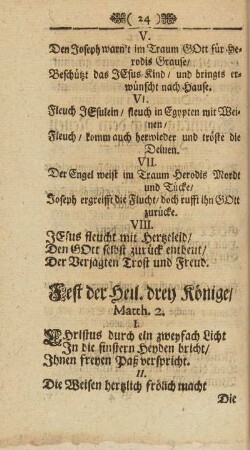 ( 24 )
V.
Den Joseph warn't im Traum GOtt für He-
rodis Grause/
Beschützt das JEsus-Kind/ und bringts er-
wünscht nach Hause.
VI.
Fleuch JEsulein/ fleuch in Egypten mit Wei-
nen/
Fleuch/ komm auch herwieder und tröste die
Deinen.
VII.
Der Engel weist im Traum Herodis Mordt
und Tücke/
Joseph ergreifft die Flucht/ doch rufft ihn GOtt
zurücke.
VIII.
JEsus fleucht mit Hertzeleid/
Den GOtt selbst zurück entbeut/
Der Verjagten Trost und Freud.
Fest der Heil. drey Könige/
Matth. 2.
I.
CHristus durch ein zweyfach Licht
In die finstern Heyden bricht/
Ihnen freyen Paß verspricht.
II.
Die Weisen hertzlich frölich macht
Die